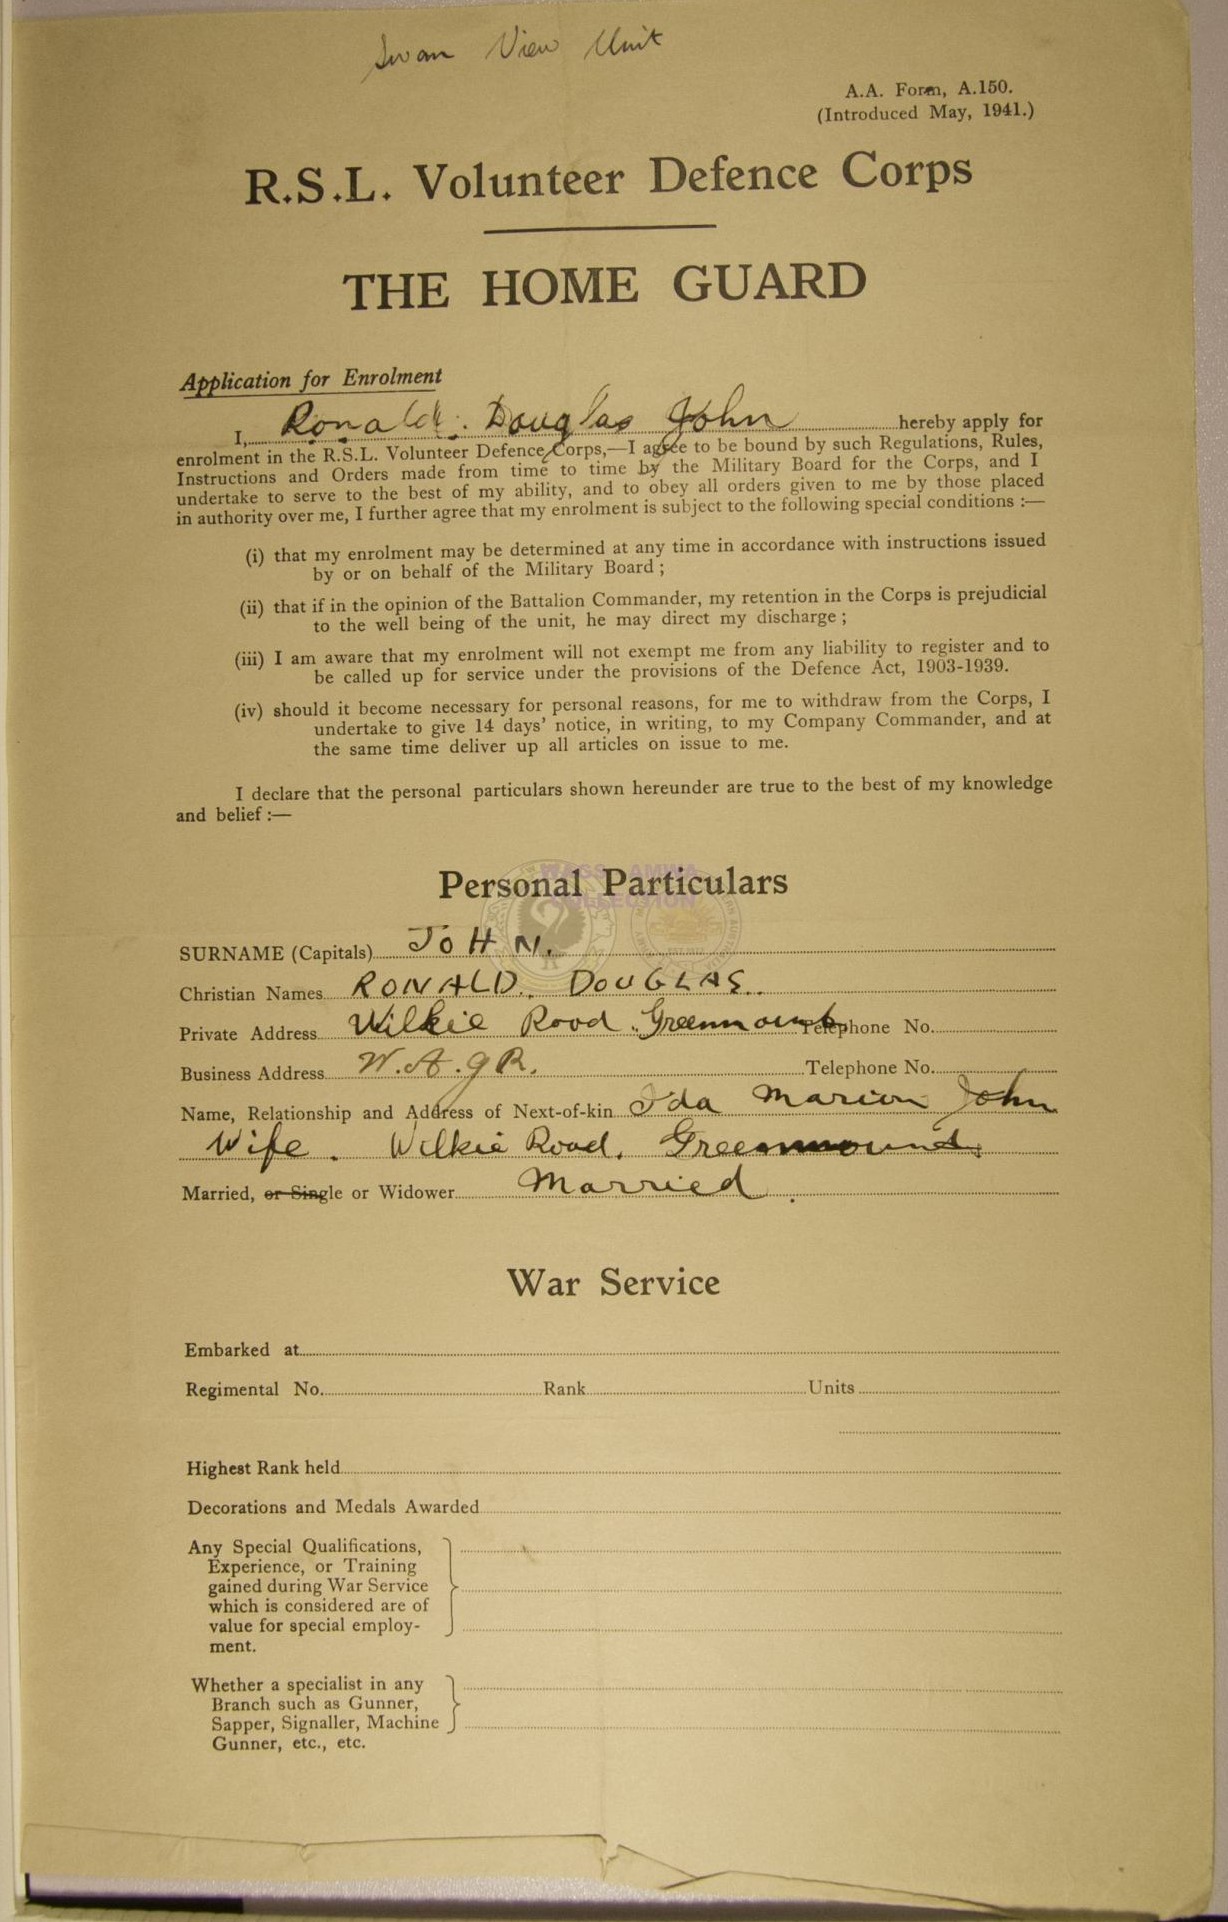 Swan View Unit
A.A. Form, A.150.
(Introduced May, 1941.)
R.S.L. Volunteer Defence Corps
THE HOME GUARD
Application for Enrolment
I, Ronald. Douglas John hereby apply for
enrolment in the R.S.L. Volunteer Defence Corps,—I agree to be bound by such Regulations, Rules,
Instructions and Orders made from time to time by the Military Board for the Corps, and I
undertake to serve to the best of my ability, and to obey all orders given to me by those placed
in authority over me, I further agree that my enrolment is subject to the following special conditions :—
(i) that my enrolment may be determined at any time in accordance with instructions issued
by or on behalf of the Military Board ;
(ii) that if in the opinion of the Battalion Commander, my retention in the Corps is prejudicial
to the well being of the unit, he may direct my discharge ;
(iii) I am aware that my enrolment will not exempt me from any liability to register and to
be called up for service under the provisions of the Defence Act, 1903-1939.
(iv) should it become necessary for personal reasons, for me to withdraw from the Corps, I
undertake to give 14 days' notice, in writing, to my Company Commander, and at
the same time deliver up all articles on issue to me.
I declare that the personal particulars shown hereunder are true to the best of my knowledge
and belief :—
WAGS - AMWA
COLLECTION
Personal Particulars
SURNAME (Capitals) JOHN.
Christian Names RONALD. DOUGLAS.
Private Address Wilkie Road. Greenmount. Telephone No.
Business Address W.A.G.R. Telephone No.
Name, Relationship and Address of Next-of-kin Ida Marion John
Wife. Wilkie Road. Greenmount.
Married, or Single or Widower Married.
War Service
Embarked at
Regimental No. Rank Units
Highest Rank held
Decorations and Medals Awarded
Any Special Qualifications,
Experience, or Training
gained during War Service
which is considered are of
value for special employ-
ment.
Whether a specialist in any
Branch such as Gunner,
Sapper, Signaller, Machine
Gunner, etc., etc.